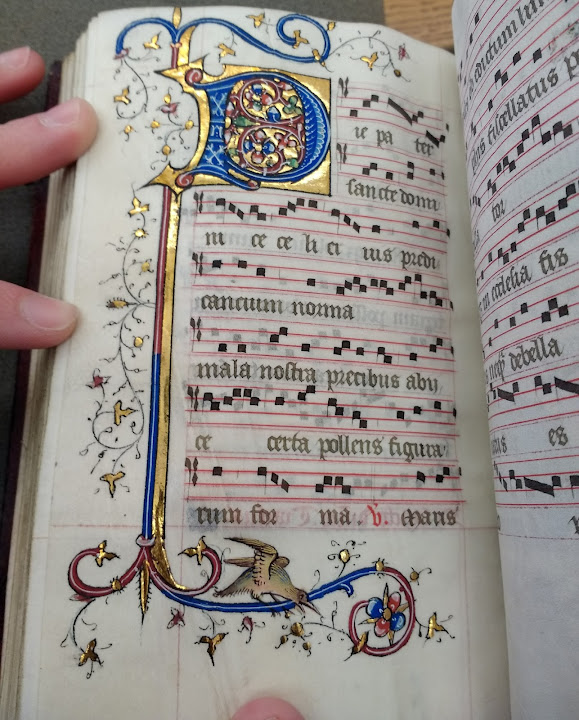 Pie pa ter
sancte domi
ni ce ce li ci ius predi
cancium norma
mala nostra precibus abu
ce certa pollens figura
rum for ma v. Maris
dictum
tor
in ecclesia sis
debella
es